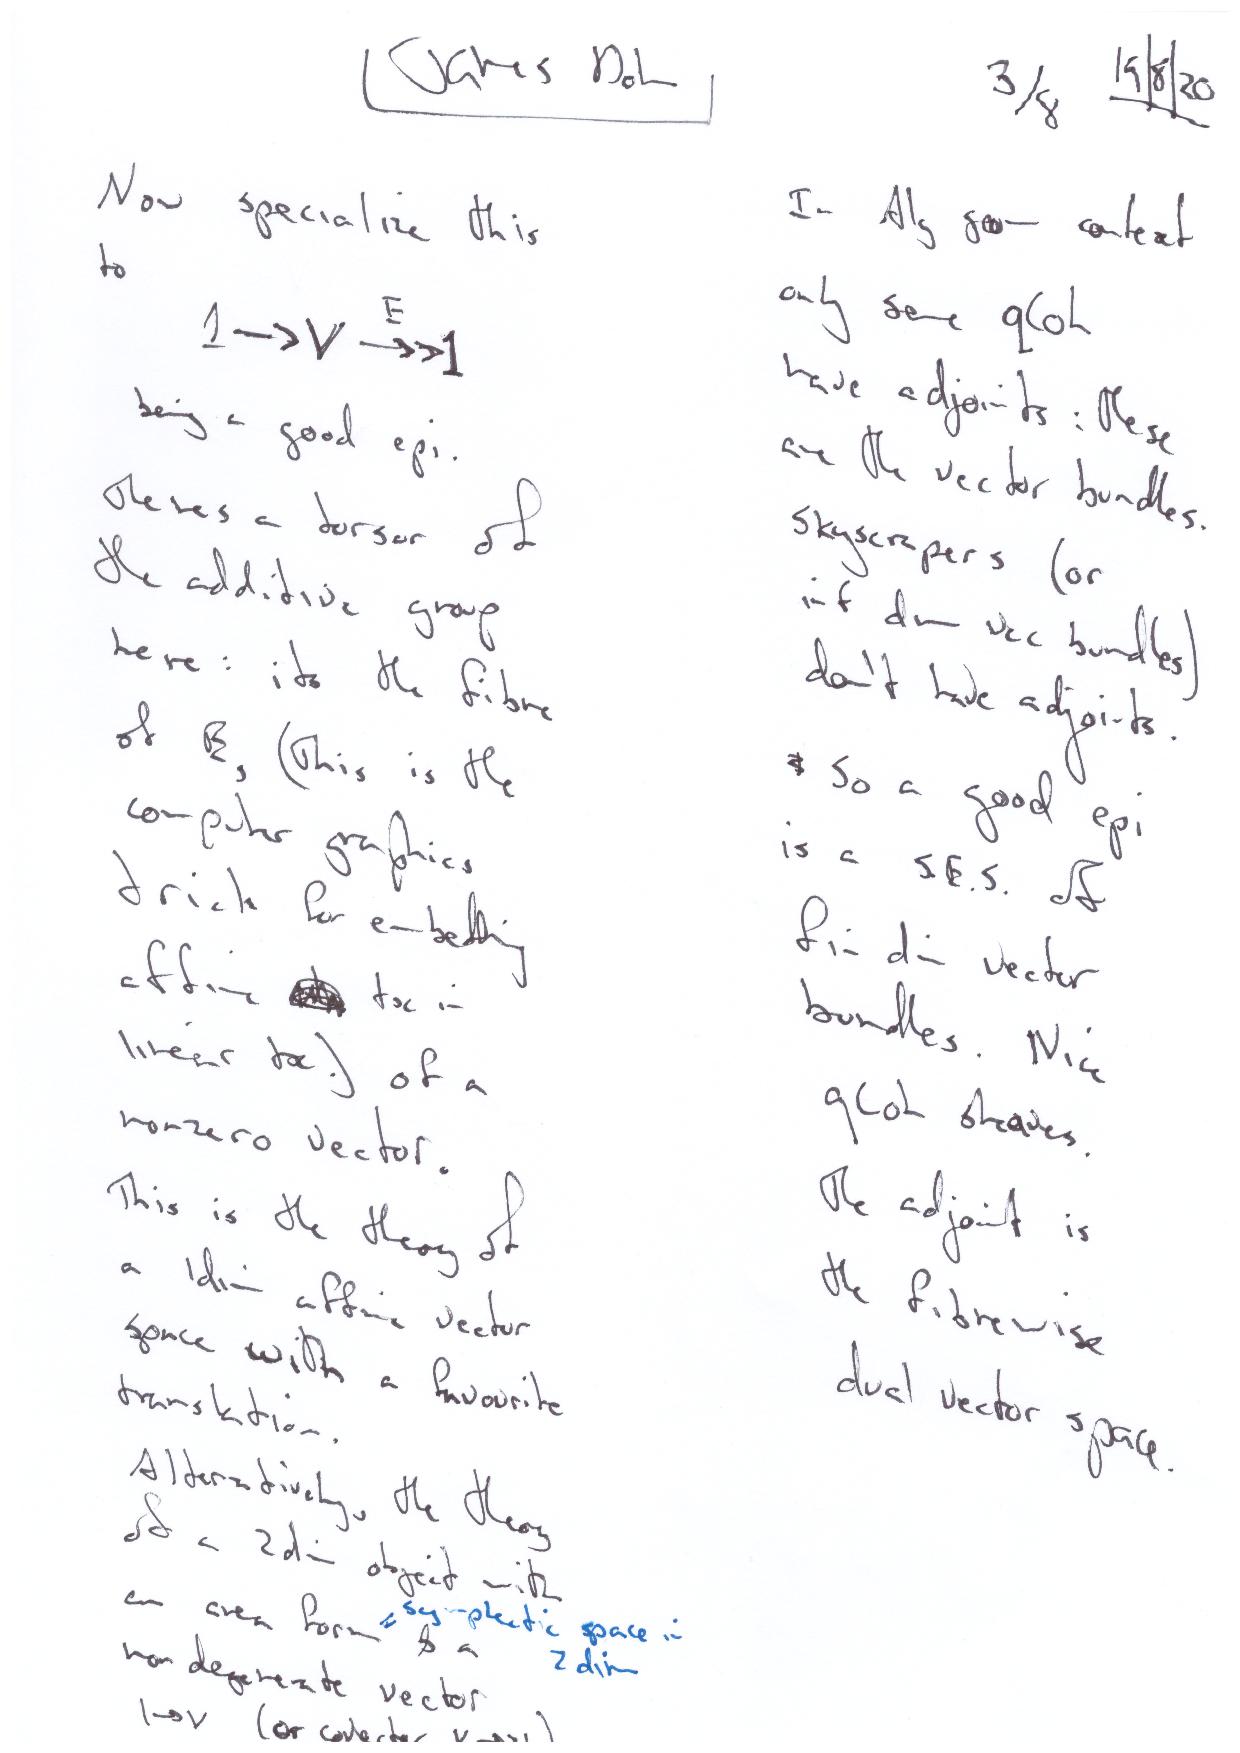 James Doh
3/8 19/8/20
Now specialize this
to
1 → V E ↠ 1
being a good epi.
theres a torsor of
the additive group
here: its the fibre
of E, (This is the
computer graphics
trick for embedding
affine tx in
linear tx.) of a
nonzero vector.
This is the theory of
a 1dim affine vector
space with a favourite
translation.
Alternatively, the theory
of a 2dim object with
an area form & a
= symplectic space in
2 dim
non degenerate vector
1→V (or covector V→1)
In Alg geom context
only some qCoh
have adjoints: these
are the vector bundles.
Skyscrapers (or
inf dim vec bundles)
don't have adjoints.
So a good epi
is a S.E.S. of
fin dim vector
bundles. Nice
qCoh sheaves.
The adjoint is
the fibrewise
dual vector space.